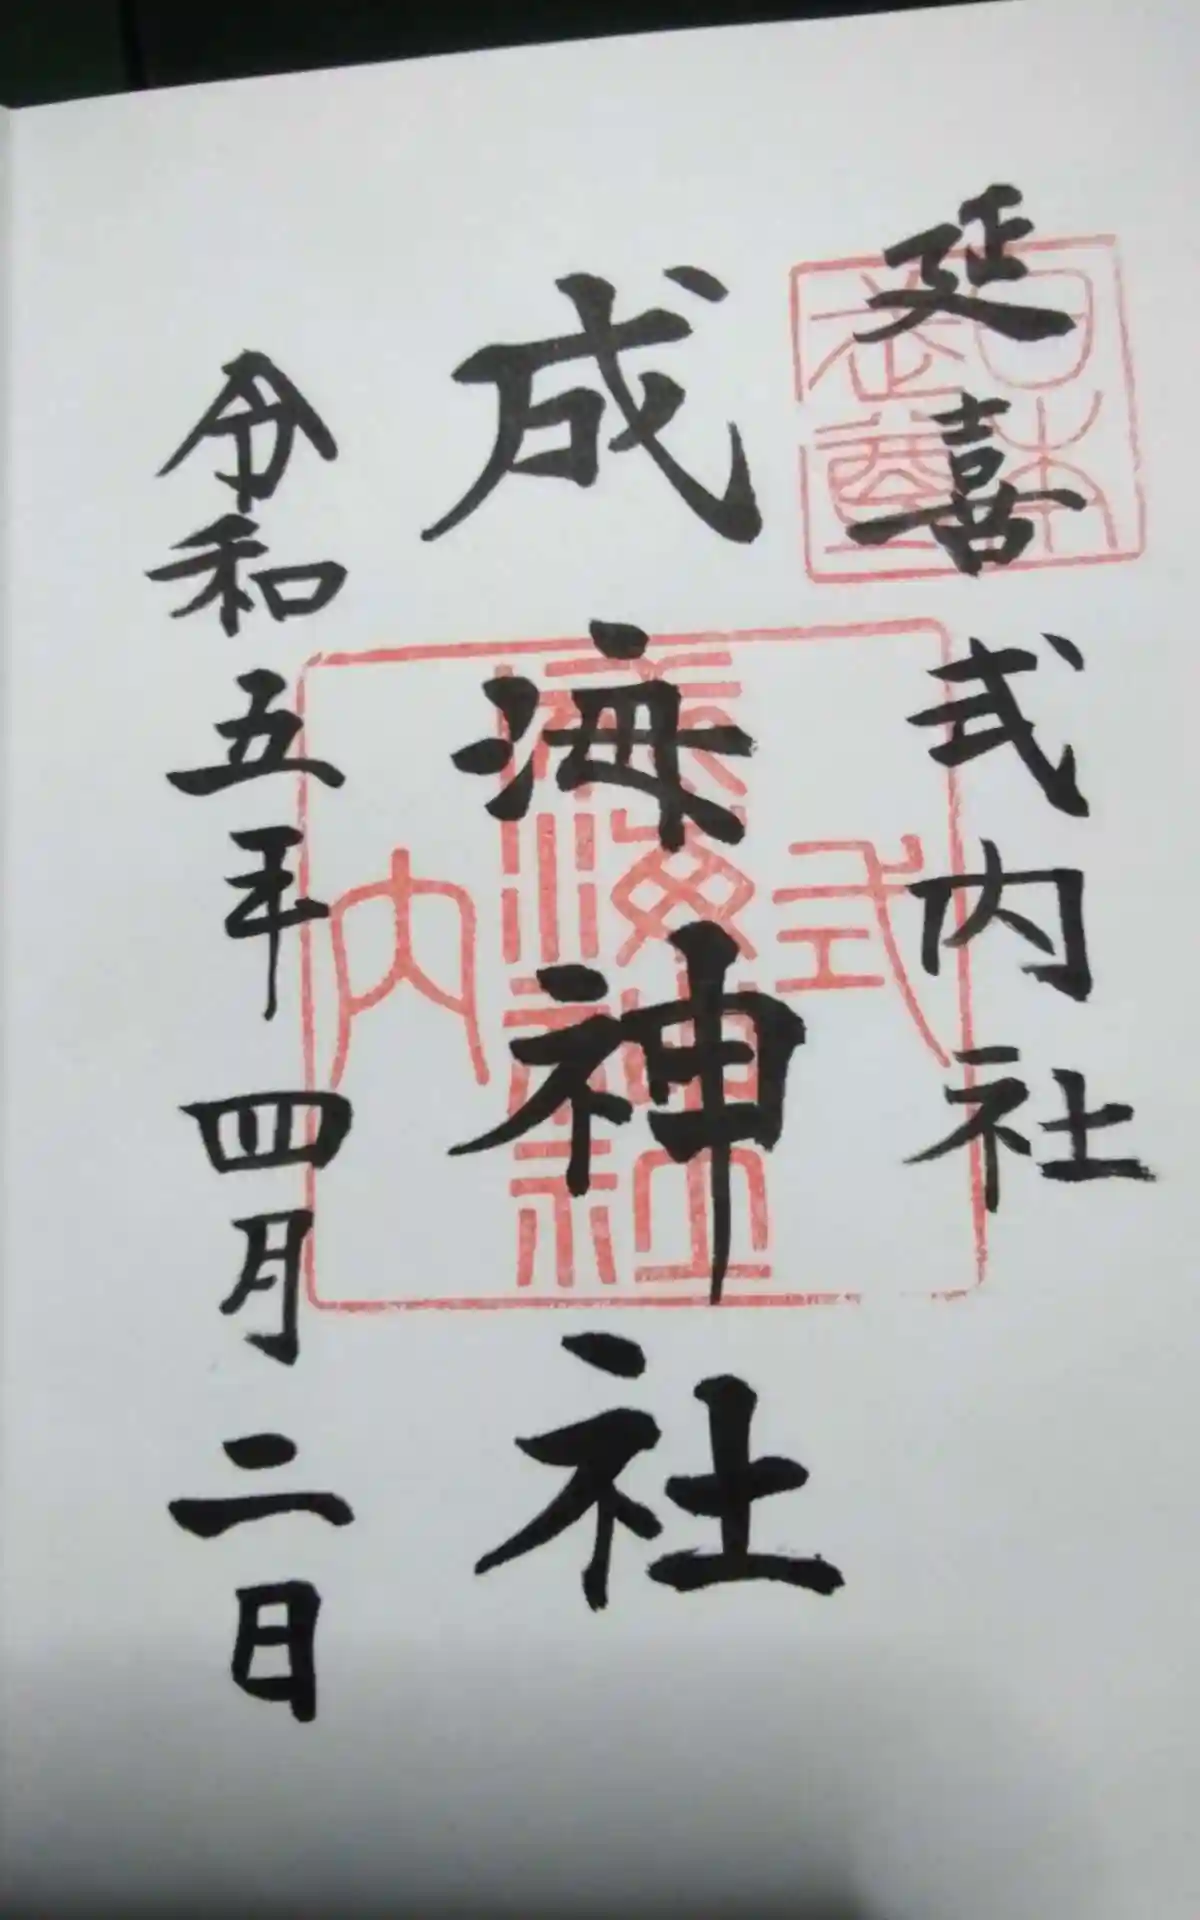 延喜式内社
日本武尊
成海神社
式
成海神社
内
令和五年四月二日